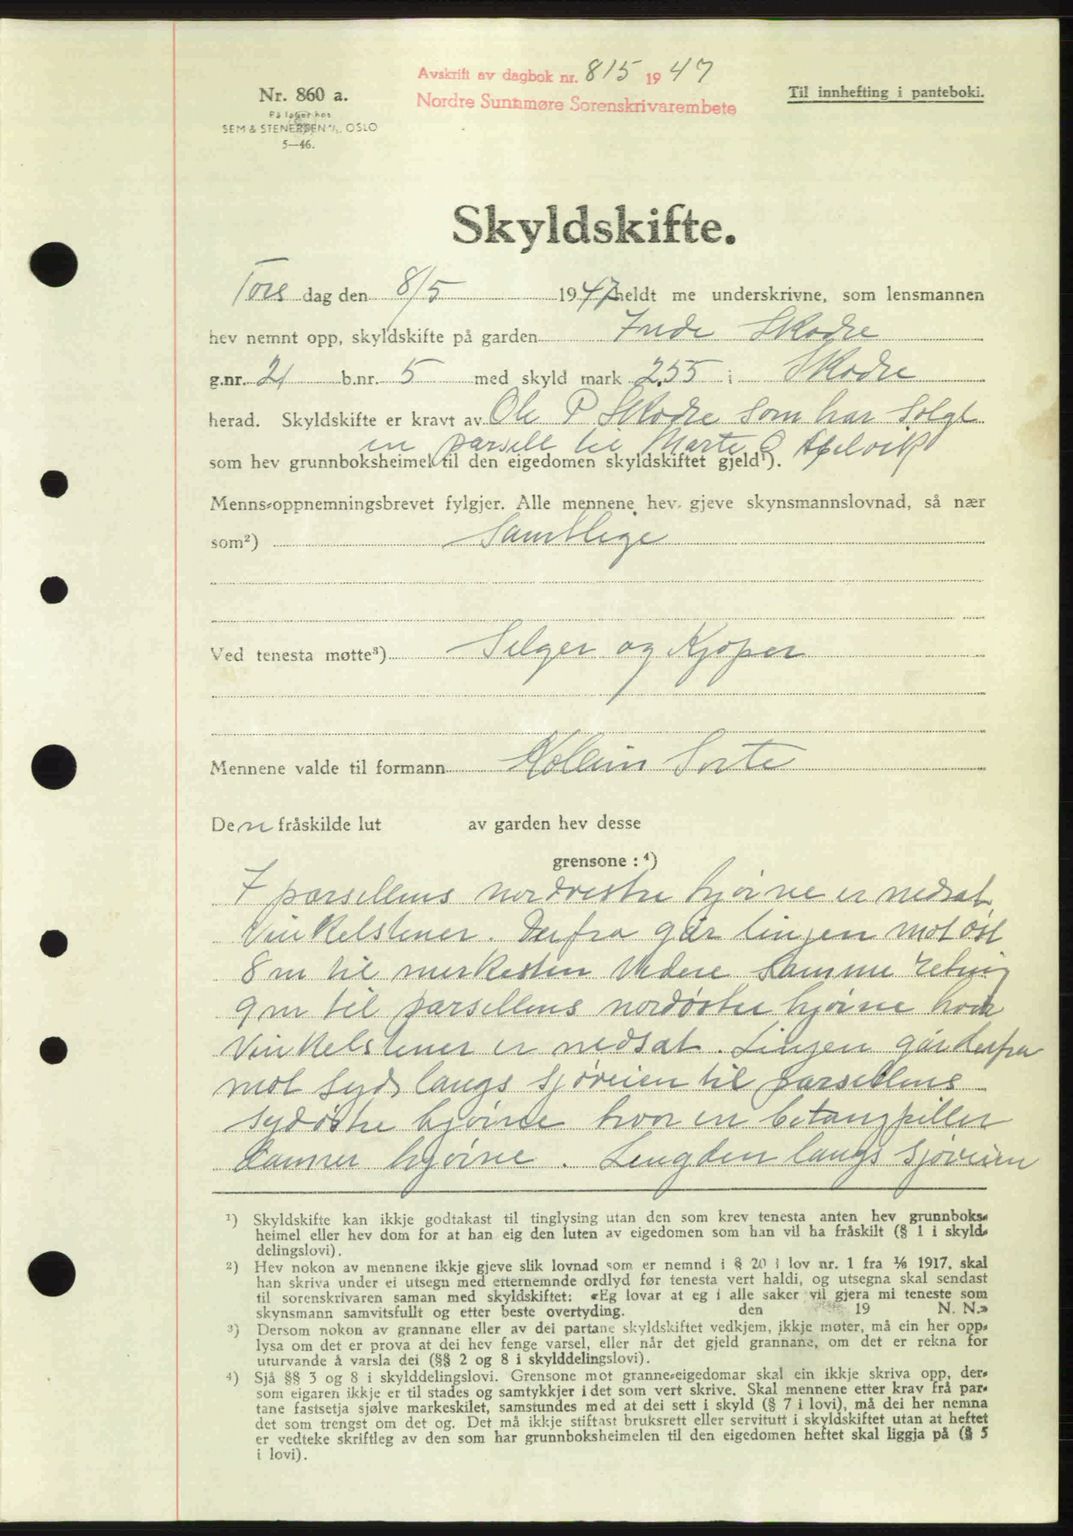 Avskrift av dagbok nr. 815 1947
Nordre Sunnmøre Sorenskrivarembete
Nr. 860 a.
På lager hos
SEM & STENERSEN A/S, OSLO
5—46.
Til innhefting i panteboki.
Skyldskifte.
Tors dag den 8/5 1947 heldt me underskrivne, som lensmannen
hev nemnt opp, skyldskifte på garden Indre Skodje
g.nr. 21 b.nr. 5 med skyld mark 2.55 i Skodje
herad. Skyldskifte er kravt av Ole P Skodje som har solgt
en parsell til Marte O
som hev grunnboksheimel til den eigedomen skyldskiftet gjeld¹).
Menns-oppnemningsbrevet fylgjer. Alle mennene hev gjeve skynsmannslovnad, så nær
som²) Samtlige
Ved tenesta møtte³) Selger og Kjøper
Mennene valde til formann Kolbein Sorte
Den fråskilde lut av garden hev desse
grensone: ⁴)
I parsellens nordvestre hjørne er nedsat
Vinkelstener. Derfra går linjen mot øst
8 m til merkesten videre samme retning
9 m til parsellens nordøstre hjørne hvor
Vinkelstener er nedsat. Linjen går derfra
mot syd langs sjøveien til parsellens
sydøstre hjørne hvor en betongpiller
danner hjørne. Lengden langs sjøveien
¹) Skyldskifte kan ikkje godtakast til tinglysing utan den som krev tenesta anten hev grunnboks-
heimel eller hev dom for at han eig den luten av eigedomen som han vil ha fråskilt (§ 1 i skyld-
delingslovi).
²) Hev nokon av mennene ikkje gjeve slik lovnad som er nemnd i § 20 i lov nr. 1 fra 1/6 1917, skal
han skriva under ei utsegn med etternemnde ordlyd før tenesta vert haldi, og utsegna skal sendast
til sorenskrivaren saman med skyldskiftet: «Eg lovar at eg i alle saker vil gjera mi teneste som
skynsmann samvitsfullt og etter beste overtyding. den 19 N. N.»
³) Dersom nokon av grannane eller av dei partane skyldskiftet vedkjem, ikkje møter, må ein her opp-
lysa om det er prova at dei hev fenge varsel, eller når det gjeld grannane, om det er rekna for
uturvande å varsla dei (§§ 2 og 8 i skylddelingslovi).
⁴) Sjå §§ 3 og 8 i skylddelingslovi. Grensone mot granne-eigedomar skal ein ikkje skriva opp, der-
som eigaren ikkje er til stades og samtykkjer i det som vert skrive. Skal mennene etter krav frå par-
tane fastsetja sjølve markeskilet, samstundes med at dei sett i skyld (§ 7 i lovi), må dei her nemna
det som trengst om det og. Det må ikkje stiftast bruksrett eller servitutt i skyldskiftet utan at heftet
er vedteke skriftleg av den som har grunnboksheimelen til den eigedomen heftet skal liggja på (§ 5
i lovi).